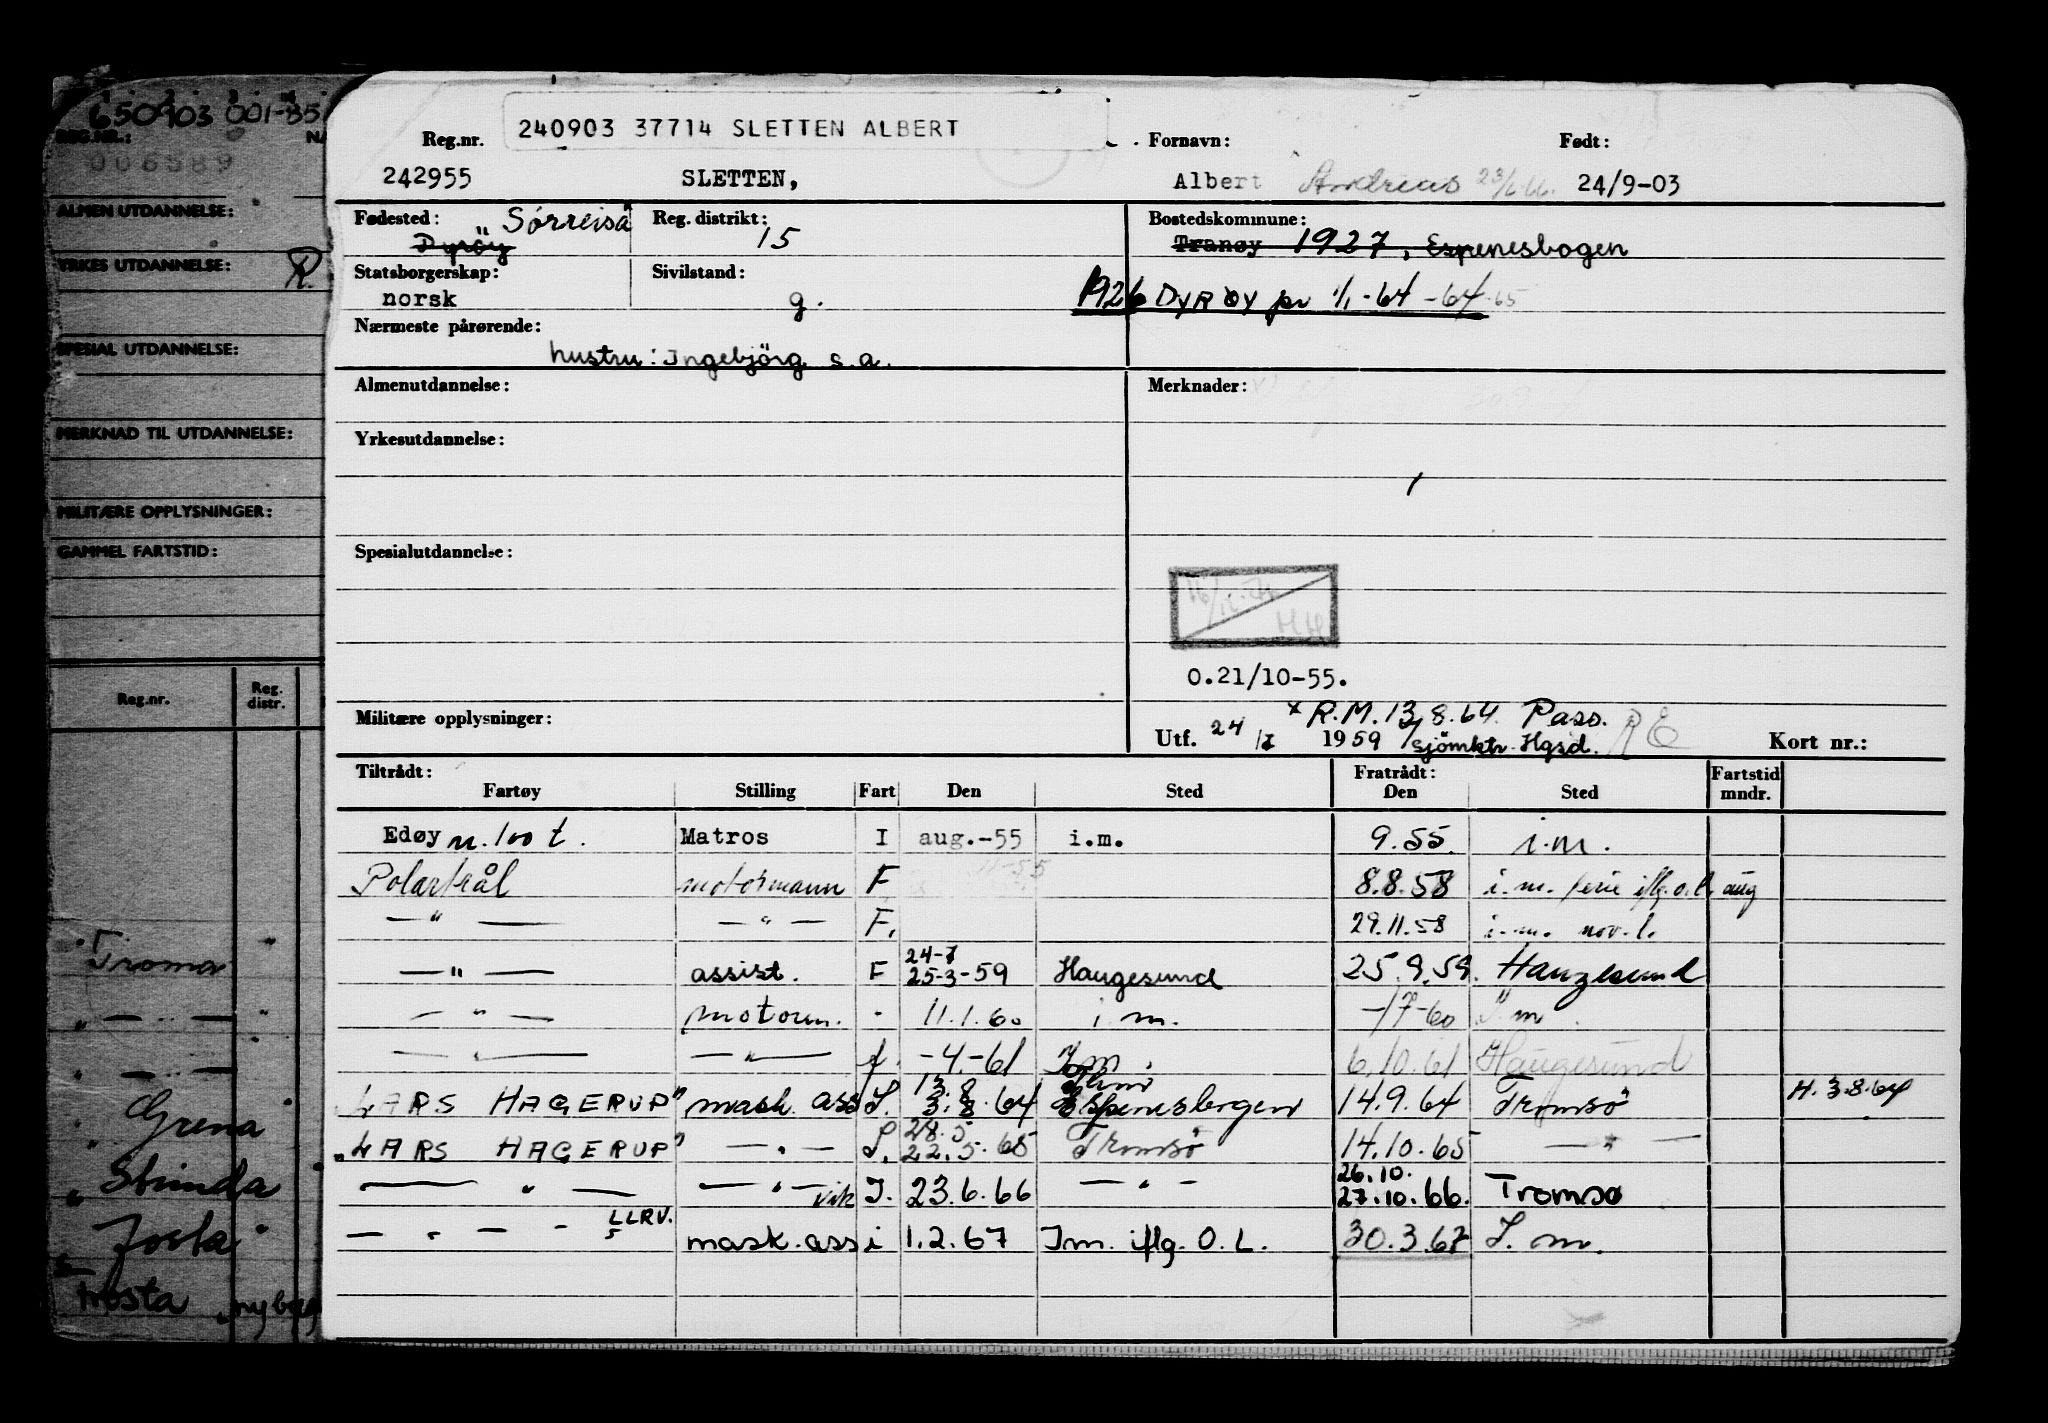 650903 001-85
REG.NR.:
006589
ALMEN UTDANNELSE:
YRKES UTDANNELSE: R.
SPESIAL UTDANNELSE:
MERKNAD TIL UTDANNELSE:
MILITÆRE OPPLYSNINGER:
GAMMEL FARTSTID:
Reg.nr. Reg. distr.
Troma "
" — " — "
" — " —
" Grena "
" Stinda "
" Josta "
Trosta
240903 37714 SLETTEN ALBERT
Reg.nr. Fornavn: Født:
242955 SLETTEN, Albert Andreas 24/9-03
Fødested: "Sørreisa" Reg. distrikt: Bostedskommune:
Dyrøy 15 Tranøy 1927, Espenesbogen
Statsborgerskap: Sivilstand:
norsk g. 1926 DYRØY pr 1/1-64 -64-65
Nærmeste pårørende:
hustru: Ingebjörg s.a.
Almenutdannelse: Merknader:
Yrkesutdannelse:
Spesialutdannelse:
HH
0.21/10-55.
Militære opplysninger: x R.M. 13/8.64. Pass.
Utf. 24/I 1959 sjömktr. Hgsd. Kort nr.:
Tiltrådt: Fratrådt: Fartstid
Fartøy Stilling Fart Den Sted Den Sted mndr.
Edøy n. 100 t. Matros I aug.-55 i.m. 9.55. i.m.
Polartrål motormann F 11-55 8.8.58 i.m. ferie iflg. o.l. aug
— " — — " — F. 29.11.58 i.m. nov. l.
— " — assist. F 24-7 25-3-59 Haugesund 25.9.59. Haugesund
— " — motorm. " 11.1.60 i.m. -/7-60 I m
— " — — " — f. -4-61 I m. 6.10.61 Haugesund
"LARS HAGERUP" mask. ass I. 13.8 3.8.64 Espenesbogen 14.9.64 Tromsø H. 3.8.64
"LARS HAGERUP" — " — I. 28.5 22.5.65 Tromsø 14.10.65 — " —
— " — — " — vik I. 23.6.66 — " — 26.10. 27.10.66. Tromsø
— " — LLRV. mask. ass i 1.2.67 Im. iflg. O.L. 30.3.67 I. m.